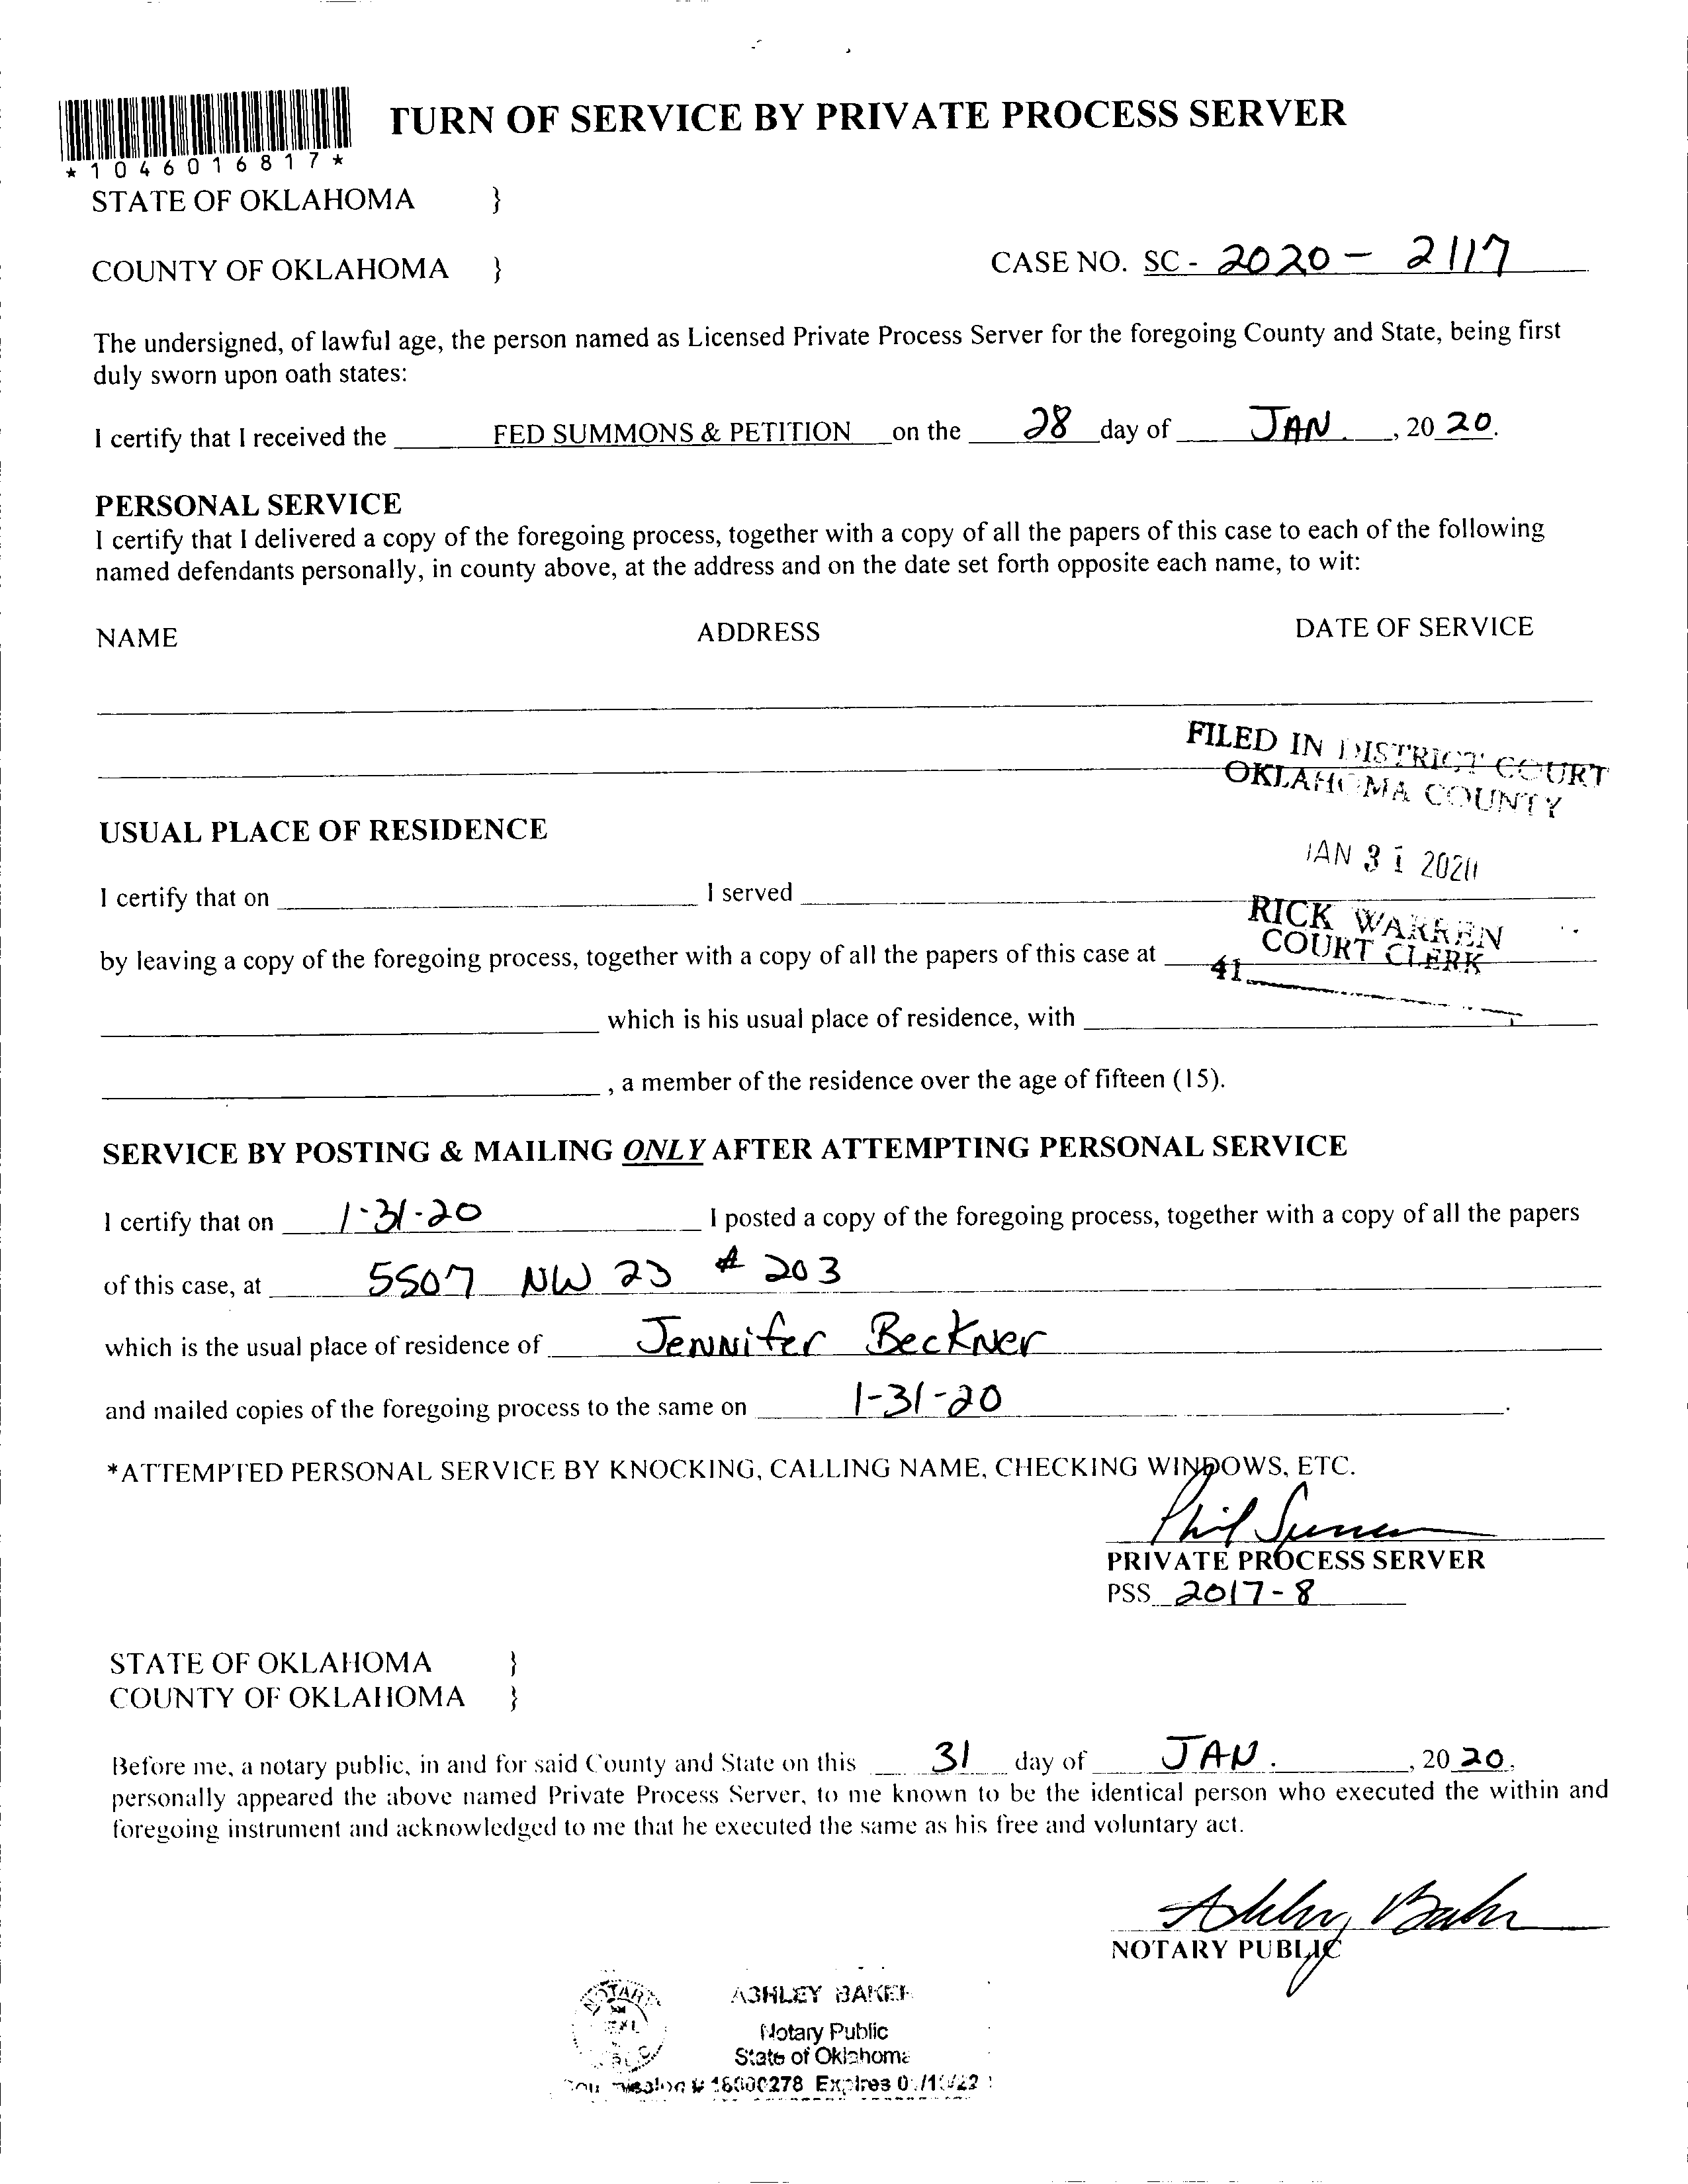 TURN OF SERVICE BY PRIVATE PROCESS SERVER
*1046016817*
STATE OF OKLAHOMA }
COUNTY OF OKLAHOMA } CASE NO. SC - 2020 - 2117
The undersigned, of lawful age, the person named as Licensed Private Process Server for the foregoing County and State, being first
duly sworn upon oath states:
I certify that I received the FED SUMMONS & PETITION on the 28 day of JAN. , 20 20.
PERSONAL SERVICE
I certify that I delivered a copy of the foregoing process, together with a copy of all the papers of this case to each of the following
named defendants personally, in county above, at the address and on the date set forth opposite each name, to wit:
NAME ADDRESS DATE OF SERVICE
FILED IN DISTRICT COURT
OKLAHOMA COUNTY
USUAL PLACE OF RESIDENCE
JAN 31 2020
I certify that on I served
RICK WARREN
COURT CLERK
by leaving a copy of the foregoing process, together with a copy of all the papers of this case at
41
which is his usual place of residence, with
, a member of the residence over the age of fifteen (15).
SERVICE BY POSTING & MAILING ONLY AFTER ATTEMPTING PERSONAL SERVICE
I certify that on 1-31-20 I posted a copy of the foregoing process, together with a copy of all the papers
of this case, at 5507 NW 23 # 203
which is the usual place of residence of Jennifer Beckner
and mailed copies of the foregoing process to the same on 1-31-20 .
*ATTEMPTED PERSONAL SERVICE BY KNOCKING, CALLING NAME, CHECKING WINDOWS, ETC.
Phil
PRIVATE PROCESS SERVER
PSS 2017-8
STATE OF OKLAHOMA }
COUNTY OF OKLAHOMA }
Before me, a notary public, in and for said County and State on this 31 day of JAN. , 20 20,
personally appeared the above named Private Process Server, to me known to be the identical person who executed the within and
foregoing instrument and acknowledged to me that he executed the same as his free and voluntary act.
Ashley Baker
NOTARY PUBLIC
ASHLEY BAKER
Notary Public
State of Oklahoma
Commission # 18000278 Expires